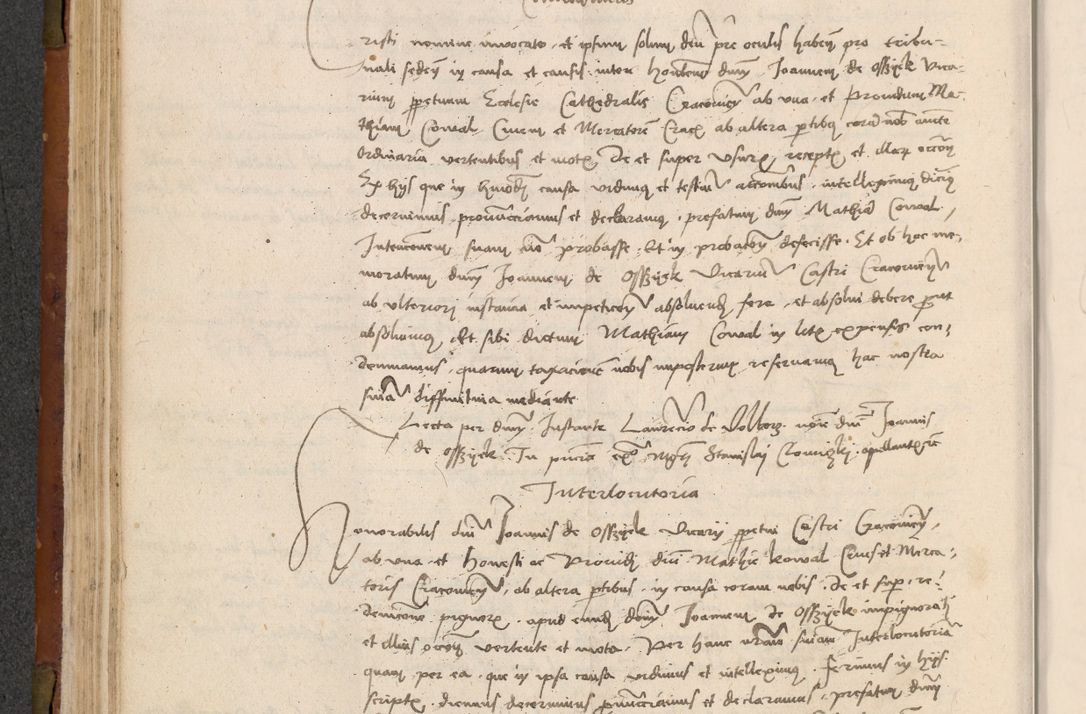 risti nomine invocato et ipsum solum deu pre oculis haben pro tribu-
nali seden in causa et causis inter honbem dnm Joannem de Osszyek Vica-
rium ppetuum Ecclesie Cathedralis Cracovien ab una et providum Ma-
thiam Cowal Civem et Mercatore Crac ab altera ptibus cora nobis aucte
ordinaria vertentibus et motis de et super usura recept et illar occon
Ex hijs que in hmodi causa vidimus et testium intelleximus dicim
decernimus pronucciamus et declaramus prefatum dnm Mathia Cowal
Intenconem suam no probasse Et in probacon defecisse Et ob hoc me-
moratum dnm Joannem de Osszyek Vicarium Castri Cracovien
ab ulteriori instancia et impeticon absolvend fore et absolvi debere put
absolvimus Et sibi dictum Mathiam Cowal in litis expensis con-
demnamus quarum taxacione nobis imposterum reservamus hac nostra
snia diffinitiva mediante
Lecta per dnm Instante Laurecio de noie dni Joannis
de Osszyek In pncia Stanislai appellante
Interlocutoria
onorabilis dni Joannis de Osszyek Vicarij ppetui Castri Cracovien
ab una et Honesti ac Providi dni Mathie Kowal Civis et Merca-
toris Cracovien ab altera ptibus in causa coram nobis de et sup re-
dempcione pignoris apud eund dnm Joannem de Osszyek impignorati
et illius occon vertente et mota Per hanc nram sniam Interlocutoria
quam per ea que in ipsa causa vidimus et intelleximus ferimus in hijs
scriptis dicimus decernimus pnucciamus et declaramus prefatum dnm